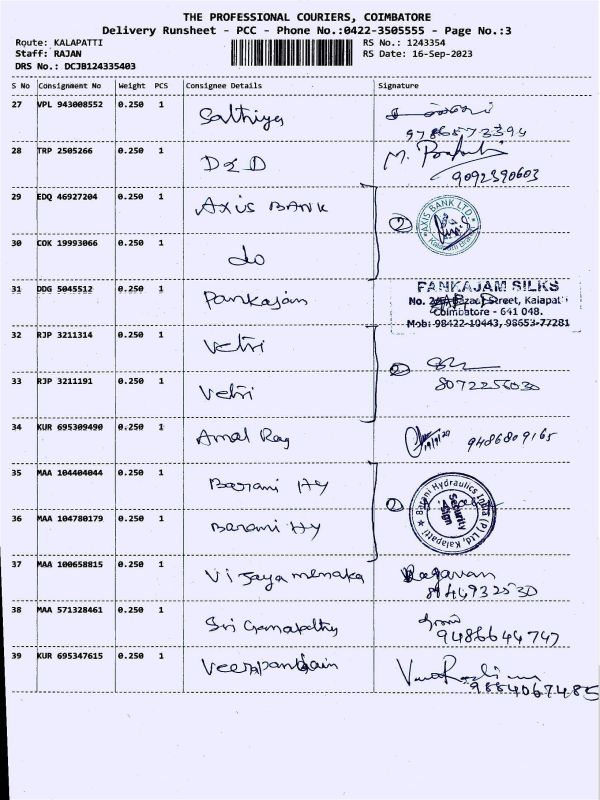 THE PROFESSIONAL COURIERS, COIMBATORE
Delivery Runsheet - PCC - Phone No.:0422-3505555 - Page No.:3
Route: KALAPATTI
Staff: RAJAN
DRS No.: DCJB124335403
RS No.: 1243354
RS Date: 16-Sep-2023
S No Consignment No Weight PCS Consignee Details Signature
27 VPL 943008552 0.250 1 Sathiya
9786573394
28 TRP 2505266 0.250 1 D&D M.
9092390603
29 EDQ 46927204 0.250 1 AXIS BANK 2 AXIS BANK LTD.
30 COK 19993066 0.250 1 do
31 DDG 5045512 0.250 1 Pankajam PANKAJAM SILKS
No. Street, Kalapatti
Coimbatore - 641 048.
Mob: 98422-10443, 98653-77281
32 RJP 3211314 0.250 1 Vetri 2
8072256030
33 RJP 3211191 0.250 1 Vetri
34 KUR 695309490 0.250 1 Amal Raj 9486809165
35 MAA 104404044 0.250 1 Barani Hy 2 Barani Hydraulics India (P) Ltd, Kalapatti
Security
36 MAA 104780179 0.250 1 Barani Hy
37 MAA 100658815 0.250 1 Vijaya menaka Ragavan
38 MAA 571328461 0.250 1 Sri Ganapathy
9486644747
39 KUR 695347615 0.250 1 Veerapandian
9884067485